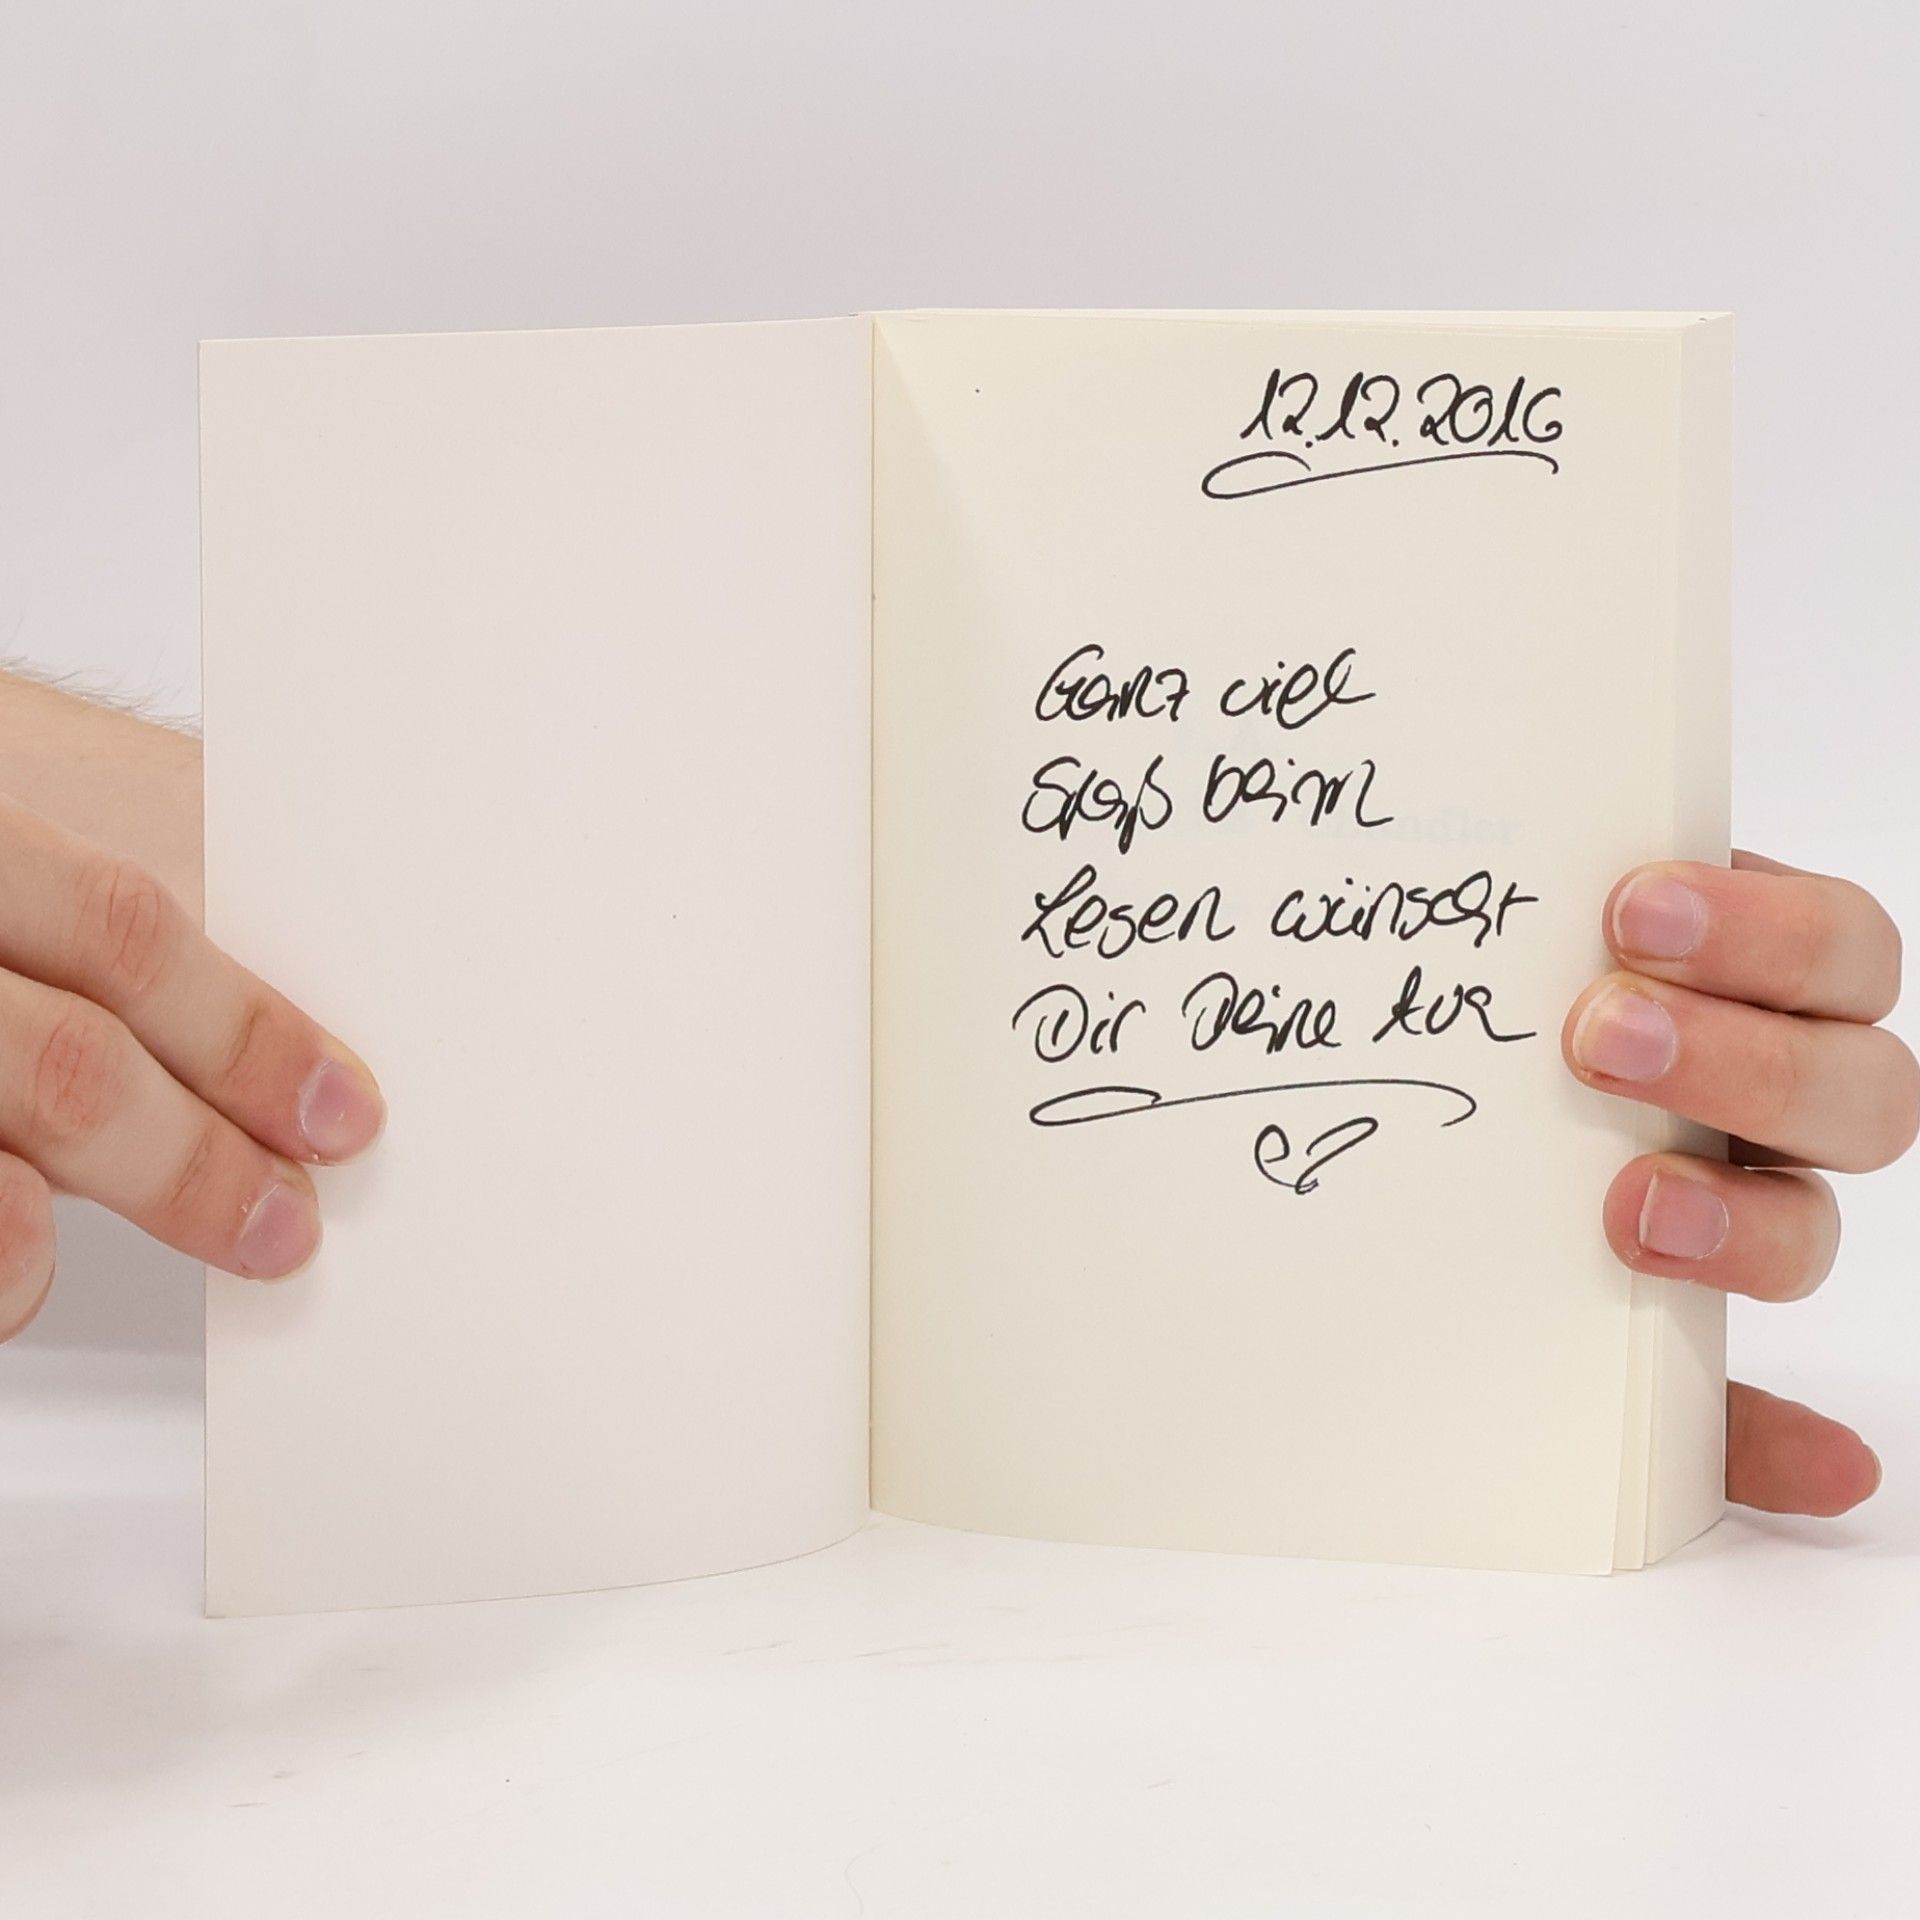 12.12.2016
Ganz viel
Spaß beim
Lesen wünscht
Dir Deine